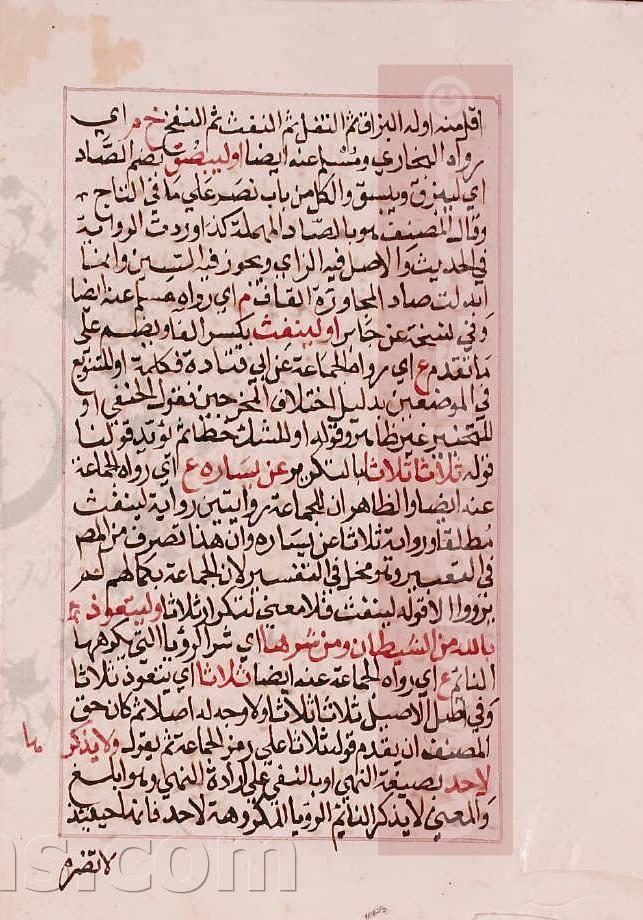 اقل منه اوله البزاق ثم التفل ثم النفث ثم النفخ خ م اي
رواه البخاري ومسلم عنه ايضا او ليبصق بضم الصاد
اي ليبزق ويبسق والكل من باب نصر على ما في التاج
وقال المصنف هو بالصاد المهملة كذا وردت الرواية
في الحديث والاصل فيه الزاي ويجوز فيه السين وانما
ابدلت صاد المجاورة القاف م اي رواه مسلم عنه ايضا
وفي نسخة عن جابر او لينفث بكسر الفا ويضم على
ما تقدم ع اي رواه الجماعة عن ابي قتادة فكلمة او للتنويع
في الموضعين بدليل اختلاف المخرجين فقول الحنفي او
للتخيير غير ظاهر وقوله او للشك خطا ثم يؤيد قولنا
قوله ثلاثا ثلاثا بالتكرير عن يساره ع اي رواه الجماعة
عنه ايضا والظاهر ان للجماعة روايتين رواية لينفث
مطلقا ورواية ثلاثا عن يساره وان هذا تصرف من المص
في التعبير وهو مخل في التفسير لان الجماعة بكمالهم لم
يرووا الا قوله لينفث فلا معنى لتكرار ثلاثا وليتعوذ
بالله من الشيطان ومن شرها اي شر الرؤيا التي يكرهها
النائم ع اي رواه الجماعة عنه ايضا ثلاثا اي يتعوذ ثلاثا
وفي اصل الاصيل ثلاثا ثلاثا ولا وجه له اصلا ثم كان حق
المصنف ان يقدم قوله ثلاثا على رمز الجماعة ثم يقول ولا يذكرها
لاحد بصيغة النهي او بالنفي على ارادة النهي وهو ابلغ
والمعنى لا يذكر النائم الرؤيا المكروهة لاحد فانها حينئذ
لا تضره
ns.com